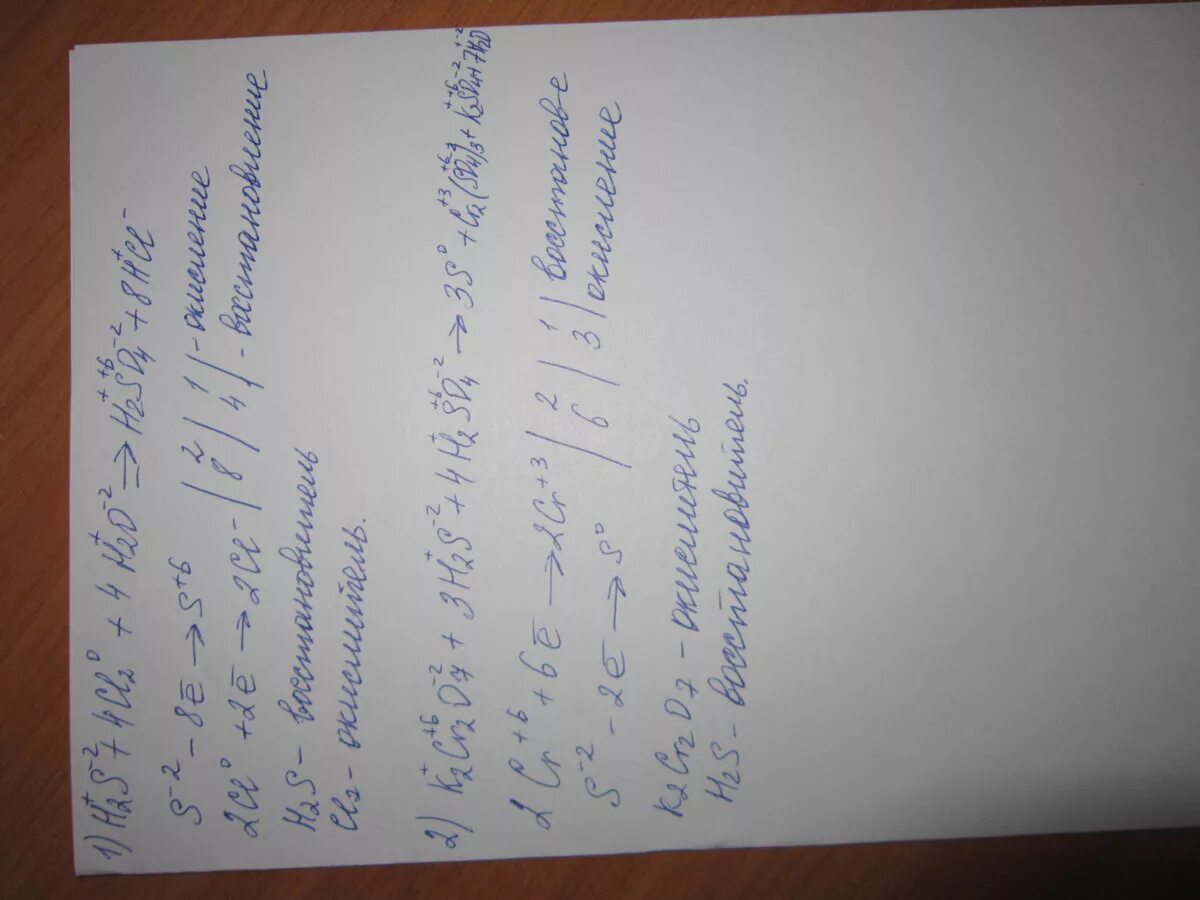 1) H₂⁺S⁻² + 4Cl₂⁰ + 4H₂⁺O⁻² ⇒ H₂⁺S⁺⁶O₄⁻² + 8H⁺Cl⁻
S⁻² - 8ē → S⁺⁶ | 2 | 1 | - окисление
2Cl⁰ + 2ē → 2Cl⁻ | 8 | 4 | - восстановление
H₂S - восстановитель
Cl₂ - окислитель.
2) K₂⁺Cr₂⁺⁶O₇⁻² + 3H₂⁺S⁻² + 4H₂⁺S⁺⁶O₄⁻² → 3S⁰ + Cr₂⁺³(S⁺⁶O₄⁻²)₃ + K₂⁺S⁺⁶O₄⁻² + 7H₂⁺O⁻²
2Cr⁺⁶ + 6ē → 2Cr⁺³ | 2 | 1 | восстанов-е
S⁻² - 2ē → S⁰ | 6 | 3 | окисление
K₂Cr₂O₇ - окислитель
H₂S - восстановитель.